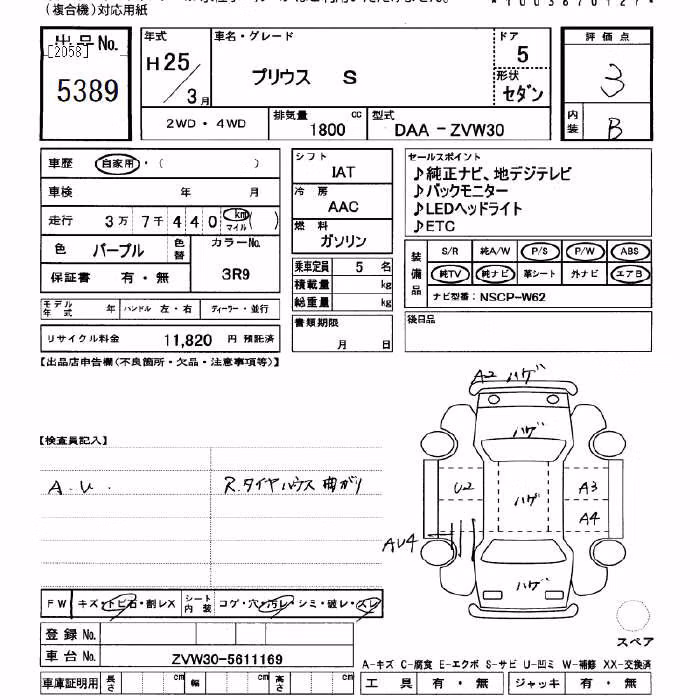 (複合機)対応用紙
出品No.
[2058]
5389
年式
H25/3月
車名・グレード
プリウス S
ドア
5
形状
セダン
評価点
3
内装
B
2WD・4WD
排気量 cc
1800
型式
DAA-ZVW30
車歴 自家用・( )
車検 年 月
走行 3万7千440 km マイル ( )
色 パープル 色替 カラーNo.
3R9
保証書 有・無
モデル年式 年 ハンドル 左・右 ディーラー・並行
リサイクル料金 11,820 円 預託済
シフト
IAT
冷房
AAC
燃料
ガソリン
乗車定員 5 名
積載量 kg
総重量 kg
書類期限
月 日
セールスポイント
♪純正ナビ、地デジテレビ
♪バックモニター
♪LEDヘッドライト
♪ETC
装備品
S/R 純A/W P/S P/W ABS
純TV 純ナビ 革シート 外ナビ エアB
ナビ型番: NSCP-W62
後日品
【出品店申告欄(不良箇所・欠品・注意事項等)】
【検査員記入】
A.U.
R.タイヤハウス曲がり
A2 ハゲ
ハゲ
U2 ハゲ A3
A4
AU4
ハゲ
スペア
FW キズ・トビ石・割レX シート内装 コゲ・穴・汚レ・シミ・破レ・スレ
登録No.
車台No. ZVW30-5611169
車庫証明用 長さ cm 幅 cm 高さ cm
A-キズ C-腐食 E-エクボ S-サビ U-凹ミ W-補修 XX-交換済
工具 有・無 ジャッキ 有・無